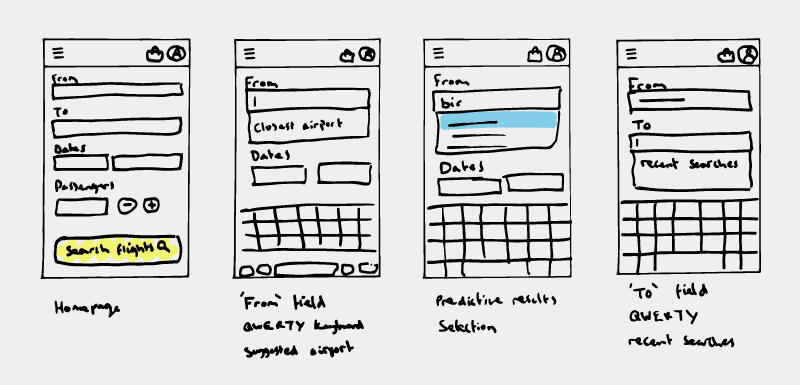 From
To
Dates
Passengers
Search flights
Homepage
From
Closest airport
Dates
'From' field
QWERTY keyboard
Suggested airport
From
bir
Dates
Predictive results
Selection
From
To
recent searches
'To' field
QWERTY
recent searches